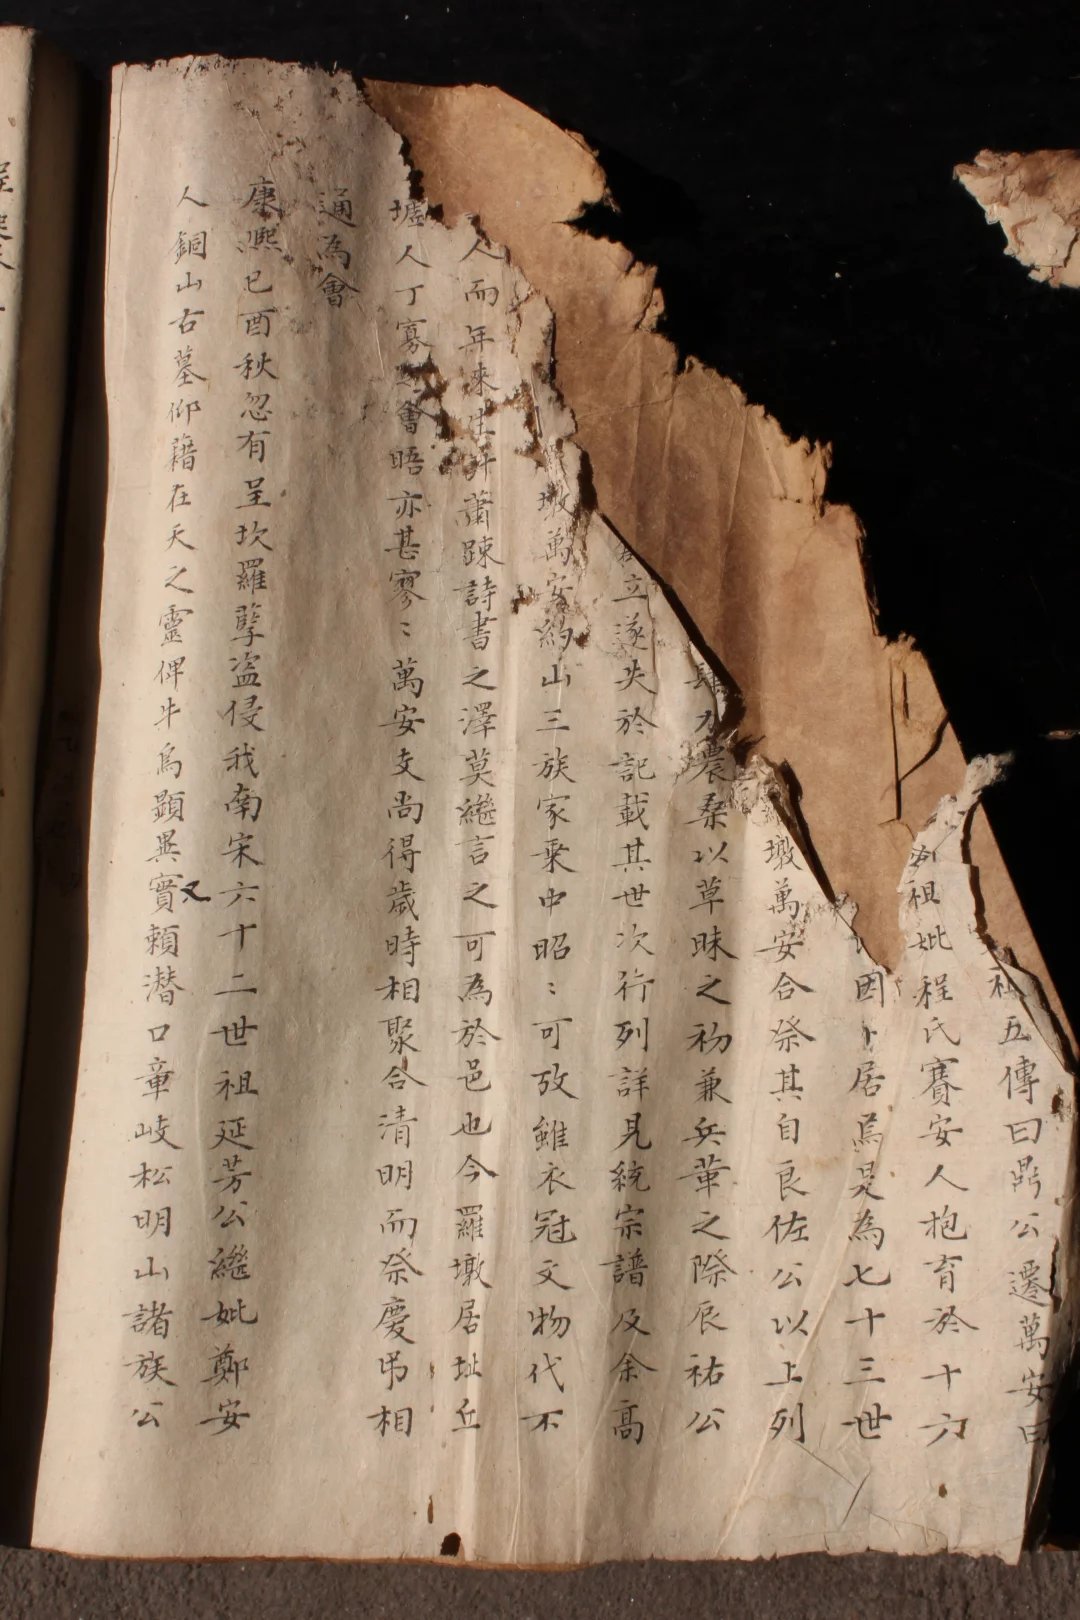 五傳曰鼎公遷萬安曰
祖妣程氏賽安人抱育於十六
因卜居焉是為七十三世
墩萬安合祭其自良佐公以上列
肆力農桑以草昧之初兼兵革之際辰祐公
立遂失於記載其世次行列詳見統宗譜及余高
墩萬安約山三族家乘中昭〻可攷雖衣冠文物代不
人而年來生計蕭踈詩書之澤莫繼言之可為於邑也今羅墩居址丘
墟人丁寡會晤亦甚寥〻萬安支尚得歲時相聚合清明而祭慶弔相
通為會
康熙已酉秋忽有呈坎羅孽盜侵我南宋六十二世祖延芳公繼妣鄭安
人銅山古墓仰藉在天之靈俾牛烏顯異實又賴潛口章岐松明山諸族公